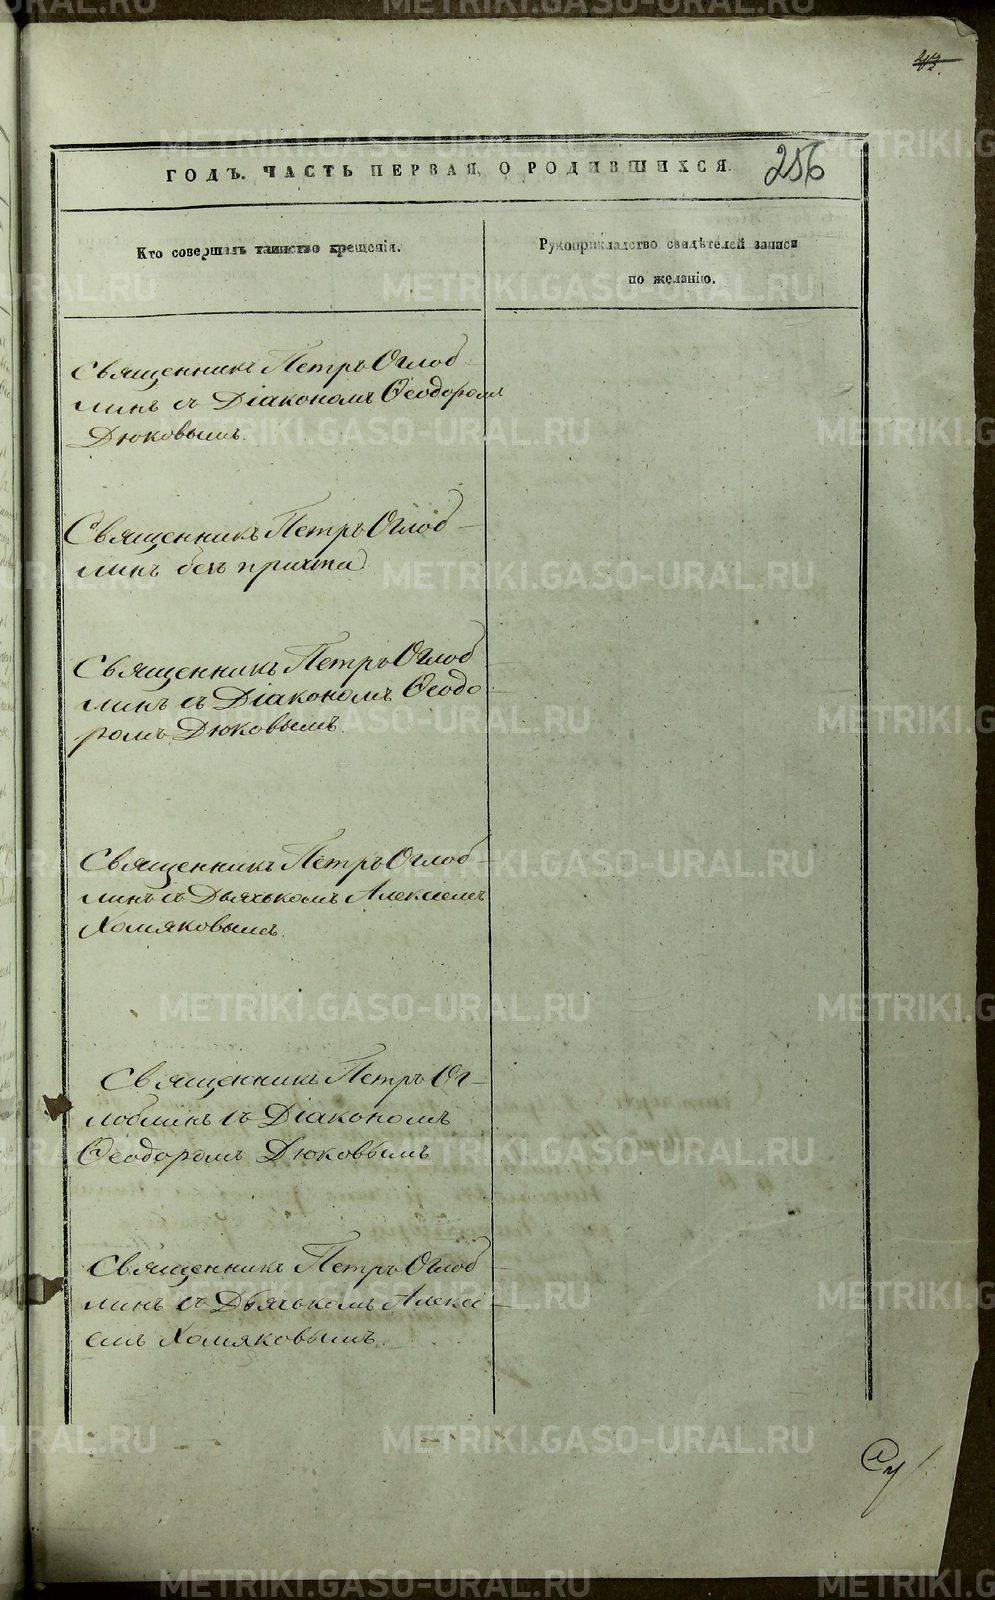 ГОДЪ. ЧАСТЬ ПЕРВАЯ, О РОДИВШИХСЯ.
256
Кто совершалъ таинство крещенія.
Рукоприкладство свидѣтелей записи
по желанію.
Священникъ Петръ Оглоб
линъ съ Діакономъ Ѳеодоромъ
Дюковымъ.
Священникъ Петръ Оглоб-
линъ безъ причта
Священникъ Петръ Оглоб
линъ съ Діакономъ Ѳеодо
ромъ Дюковымъ.
Священникъ Петръ Оглоб-
линъ съ Дьячькомъ Алексѣемъ
Хомяковымъ.
Священникъ Петръ Ог-
лоблинъ съ Діакономъ
Ѳеодоромъ Дюковымъ
Священникъ Петръ Оглоб-
линъ съ Дьячькомъ Алексѣ-
емъ Хомяковымъ.
METRIKI.GASO-URAL.RU